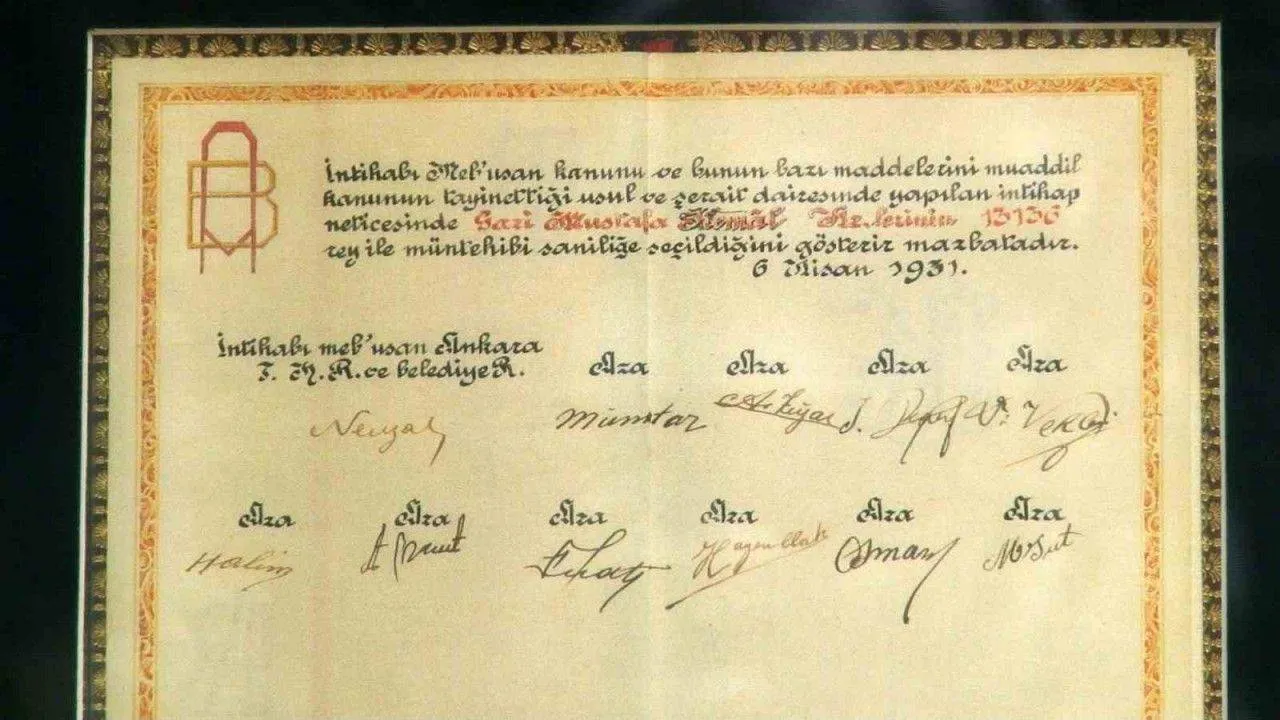 İntihabı Meb'usan kanunu ve bunun bazı maddelerini muaddil
kanunun tayinettiği usul ve şerait dairesinde yapılan intihap
neticesinde Gazi Mustafa Kemâl Hz.lerinin 13136
rey ile müntehibi saniliğe seçildiğini gösterir mazbatadır.
6 Nisan 1931.
İntihabı meb'usan Ankara
T. H. R. ve belediye R.
Âza Âza Âza Âza
Nevzat Mümtaz Vekbi
Âza Âza Âza Âza Âza Âza
Halim Hayrullah Osman